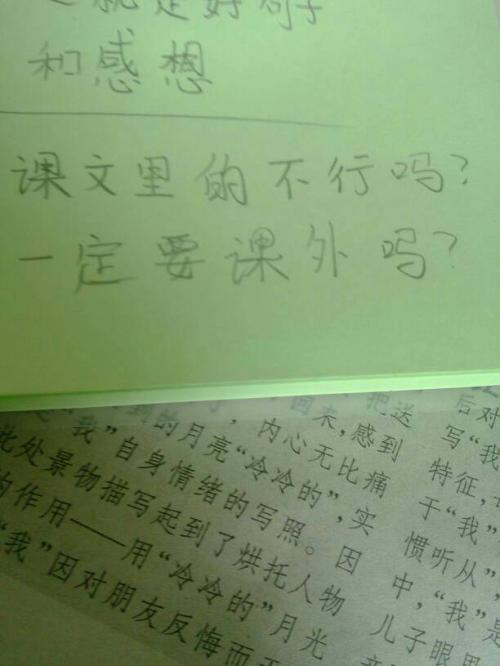 就是好句子
和感想
课文里的不行吗?
一定要课外吗?
回来,感到
到的月亮“冷冷的”,内心无比痛
“我”自身情绪的写照。因
此处景物描写起到了烘托人物
的作用——用“冷冷的”月光
“我”因对朋友反悔而
把送
后对
写“我
特征,
于“我”
惯听从”,
中,“我”是
儿子眼里
实